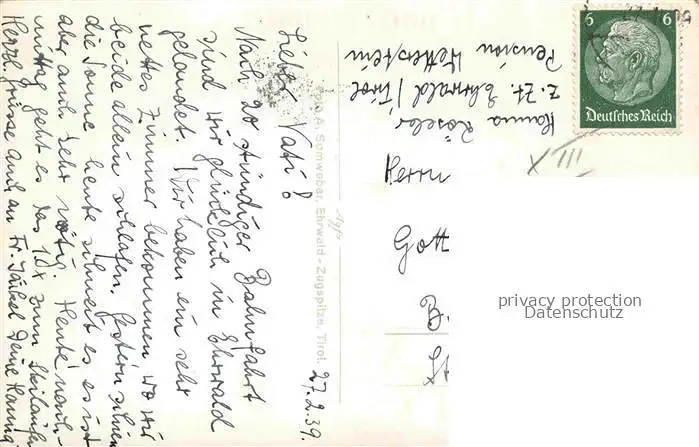 27.2.39.
Lieber Vati!
Nach 20 stündiger Bahnfahrt
sind wir glücklich in Ehrwald
gelandet. Wir haben ein sehr
nettes Zimmer bekommen wo wir
beide allein schlafen. Gestern schien
die Sonne heute schneit es es ist
aber auch sehr nötig. Heute nach-
mittag geht es das 1. x zum Skilaufen
Herzl. Grüsse auch an Fr. Deine Hanna.
Foto A. Somweber, Ehrwald - Zugspitze, Tirol.
Hanna
z. Zt. Ehrwald / Tirol
Pension Wetterstein
6 6
Deutsches Reich
XIII
Herrn
Gott
B.
St
privacy protection
Datenschutz